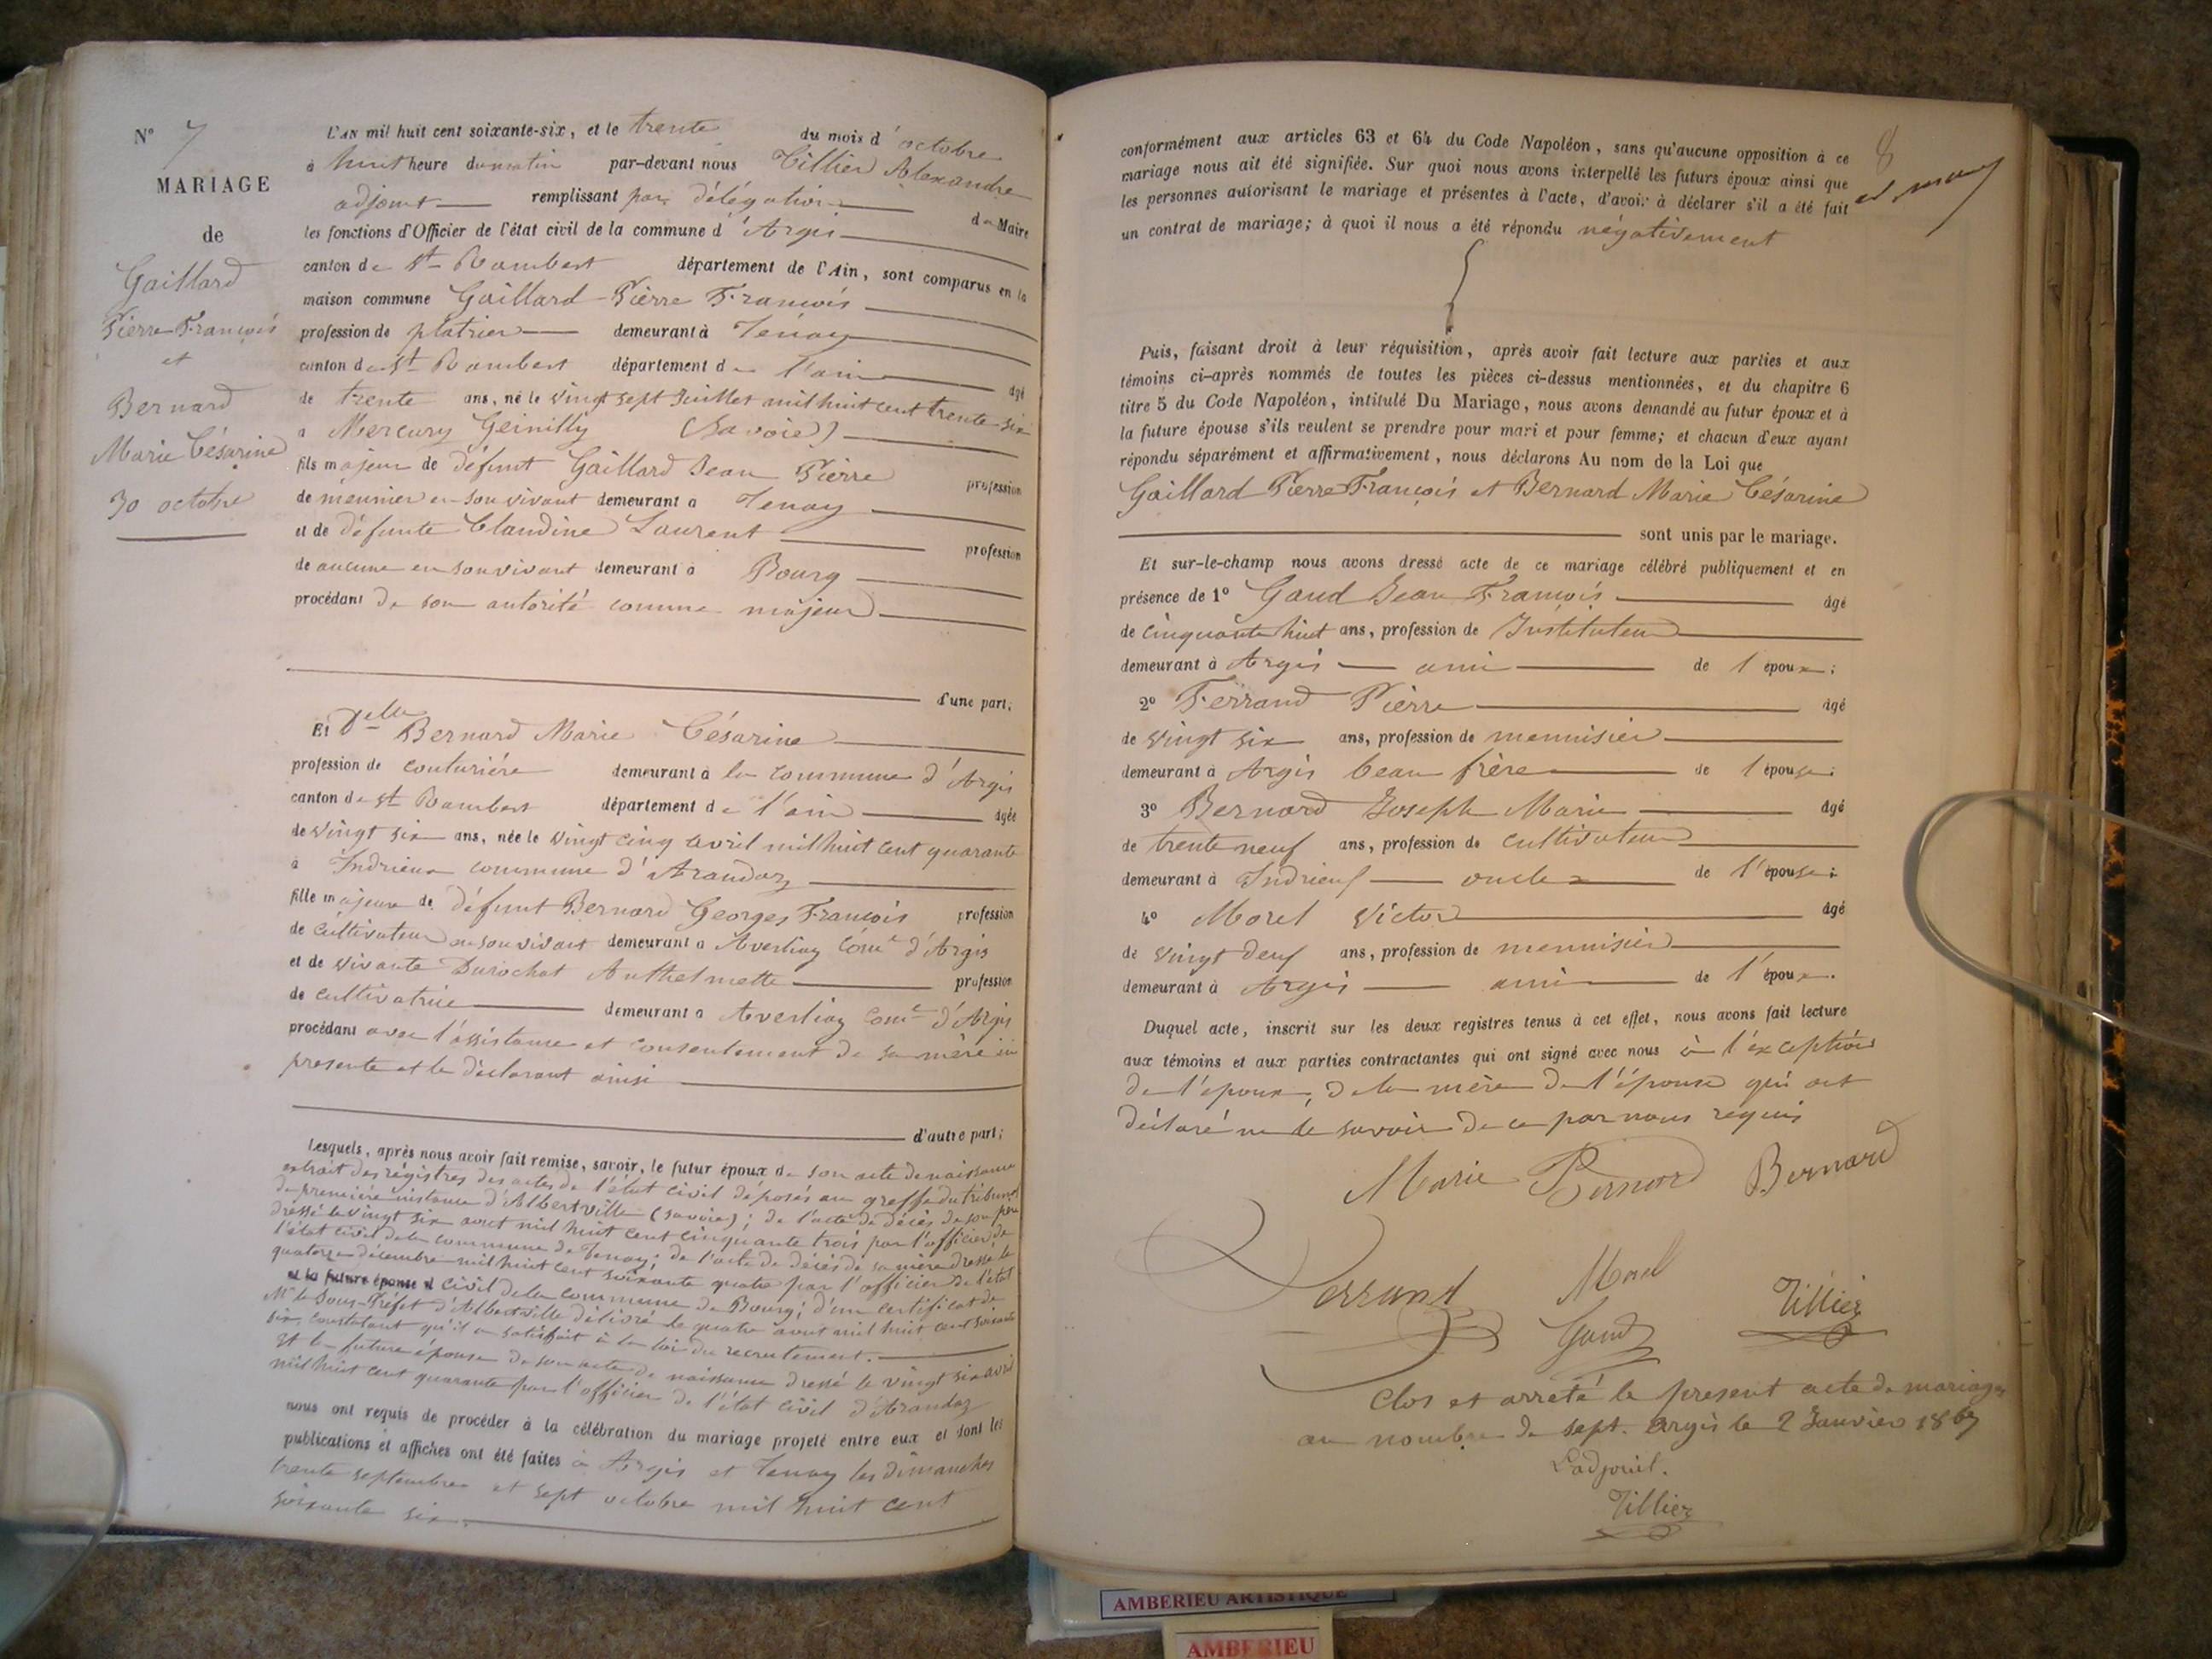 N° 7
MARIAGE
de
Gaillard
Pierre François
et
Bernard
Marie Césarine
30 octobre
L'AN mil huit cent soixante-six, et le trente du mois d'octobre
à huit heure du matin par-devant nous Tillier Alexandre
adjoint remplissant par délégation du Maire
les fonctions d'Officier de l'état civil de la commune d'Argis
canton de St Rambert département de l'Ain, sont comparus en la
maison commune Gaillard Pierre François
profession de platrier demeurant à Tenay
canton de St Rambert département de l'ain âgé
de trente ans, né le vingt sept Juillet mil huit cent trente six
à Mercury Geinilly (Savoie)
fils majeur de défunt Gaillard Jean Pierre profession
de meunier en son vivant demeurant à Tenay
et de défunte Claudine Laurent profession
de aucune en son vivant demeurant à Bourg
procédant de son autorité comme majeur
d'une part;
Et Delle Bernard Marie Césarine
profession de couturière demeurant à la commune d'Argis
canton de St Rambert département de l'ain âgée
de vingt six ans, née le vingt cinq avril mil huit cent quarante
à Indrieux commune d'Arandaz
fille majeure de défunt Bernard Georges François profession
de cultivateur en son vivant demeurant à Averliaz Come d'Argis
et de vivante Durochat Anthelmette profession
de cultivatrice demeurant à Averliaz Come d'Argis
procédant avec l'assistance et consentement de sa mère ici
presente et le déclarant ainsi
d'autre part;
Lesquels, après nous avoir fait remise, savoir, le futur époux de son acte de naissance
extrait des régistres des actes de l'état civil déposés au greffe du tribunal
de première instance d'Albertville (Savoie); de l'acte de décès de son père
dressé le vingt six aout mil huit cent cinquante trois par l'officier de
l'état civil de la commune de Tenay; de l'acte de décès de sa mère dressé le
quatorze décembre mil huit cent soixante quatre par l'officier de l'état
et la future épouse d civil de la commune de Bourg; d'un certificat de
Mr le Sous-Préfet d'Albertville délivré le quatre aout mil huit cent soixante
six, constatant qu'il a satisfait à la loi du recrutement.
Et la future épouse de son acte de naissance dressé le vingt six avril
mil huit cent quarante par l'officier de l'état civil d'Arandaz
nous ont requis de procéder à la célébration du mariage projeté entre eux et dont les
publications et affiches ont été faites à Argis et Tenay les dimanches
trente septembre et sept octobre mil huit cent
soixante six.
8
conformément aux articles 63 et 64 du Code Napoléon, sans qu'aucune opposition à ce
mariage nous ait été signifiée. Sur quoi nous avons interpellé les futurs époux ainsi que
les personnes autorisant le mariage et présentes à l'acte, d'avoir à déclarer s'il a été fait
un contrat de mariage; à quoi il nous a été répondu négativement
Puis, faisant droit à leur réquisition, après avoir fait lecture aux parties et aux
témoins ci-après nommés de toutes les pièces ci-dessus mentionnées, et du chapitre 6
titre 5 du Code Napoléon, intitulé Du Mariage, nous avons demandé au futur époux et à
la future épouse s'ils veulent se prendre pour mari et pour femme; et chacun d'eux ayant
répondu séparément et affirmativement, nous déclarons Au nom de la Loi que
Gaillard Pierre François et Bernard Marie Césarine
sont unis par le mariage.
Et sur-le-champ nous avons dressé acte de ce mariage célébré publiquement et en
présence de 1° Gaud Jean François âgé
de cinquante huit ans, profession de Instituteur
demeurant à Argis ami de l'époux;
2° Ferrand Pierre âgé
de vingt six ans, profession de menuisier
demeurant à Argis beau frère de l'épouse;
3° Bernard Joseph Marie âgé
de trente neuf ans, profession de cultivateur
demeurant à Indrieux oncle de l'épouse;
4° Morel Victor âgé
de vingt deux ans, profession de menuisier
demeurant à Argis ami de l'époux.
Duquel acte, inscrit sur les deux registres tenus à cet effet, nous avons fait lecture
aux témoins et aux parties contractantes qui ont signé avec nous à l'exception
de l'époux, de la mère de l'épouse qui ont
déclaré ne le savoir de ce par nous requis
Marie Bernard Bernard
Ferrand Morel Tillier
Gaud
Clos et arrêté le present acte de mariage
au nombre de sept. Argis le 2 Janvier 1867
L'adjoint.
Tillier
AMBERIEU ARTISTIQUE
AMBERIEU